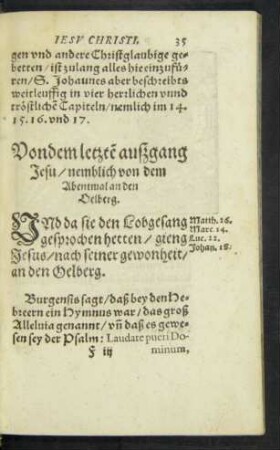 IESV CHRISTI. 35
gen vnd andere Christglaubige ge-
betten / ist zulang alles hie einzufü-
ren / S. Johannes aber beschreibts
weitleuffig in vier herrlichen vnnd
tröstlichẽ Capiteln / nemlich im 14.
15. 16. vnd 17.
Von dem letztẽ außgang
Jesu / nemblich von dem
Abentmal an den
Oelberg.
VNd da sie den Lobgesang
gesprochen hetten / gieng
Jesus / nach seiner gewonheit /
an den Oelberg.
Matth. 26.
Marc. 14.
Luc. 22.
Johan. 18.
Burgensis sagt / daß bey den He-
breern ein Hymnus war / das groß
Alleluia genannt / vñ daß es gewe-
sen sey der Psalm: Laudate pueri Do-
F iij minum,